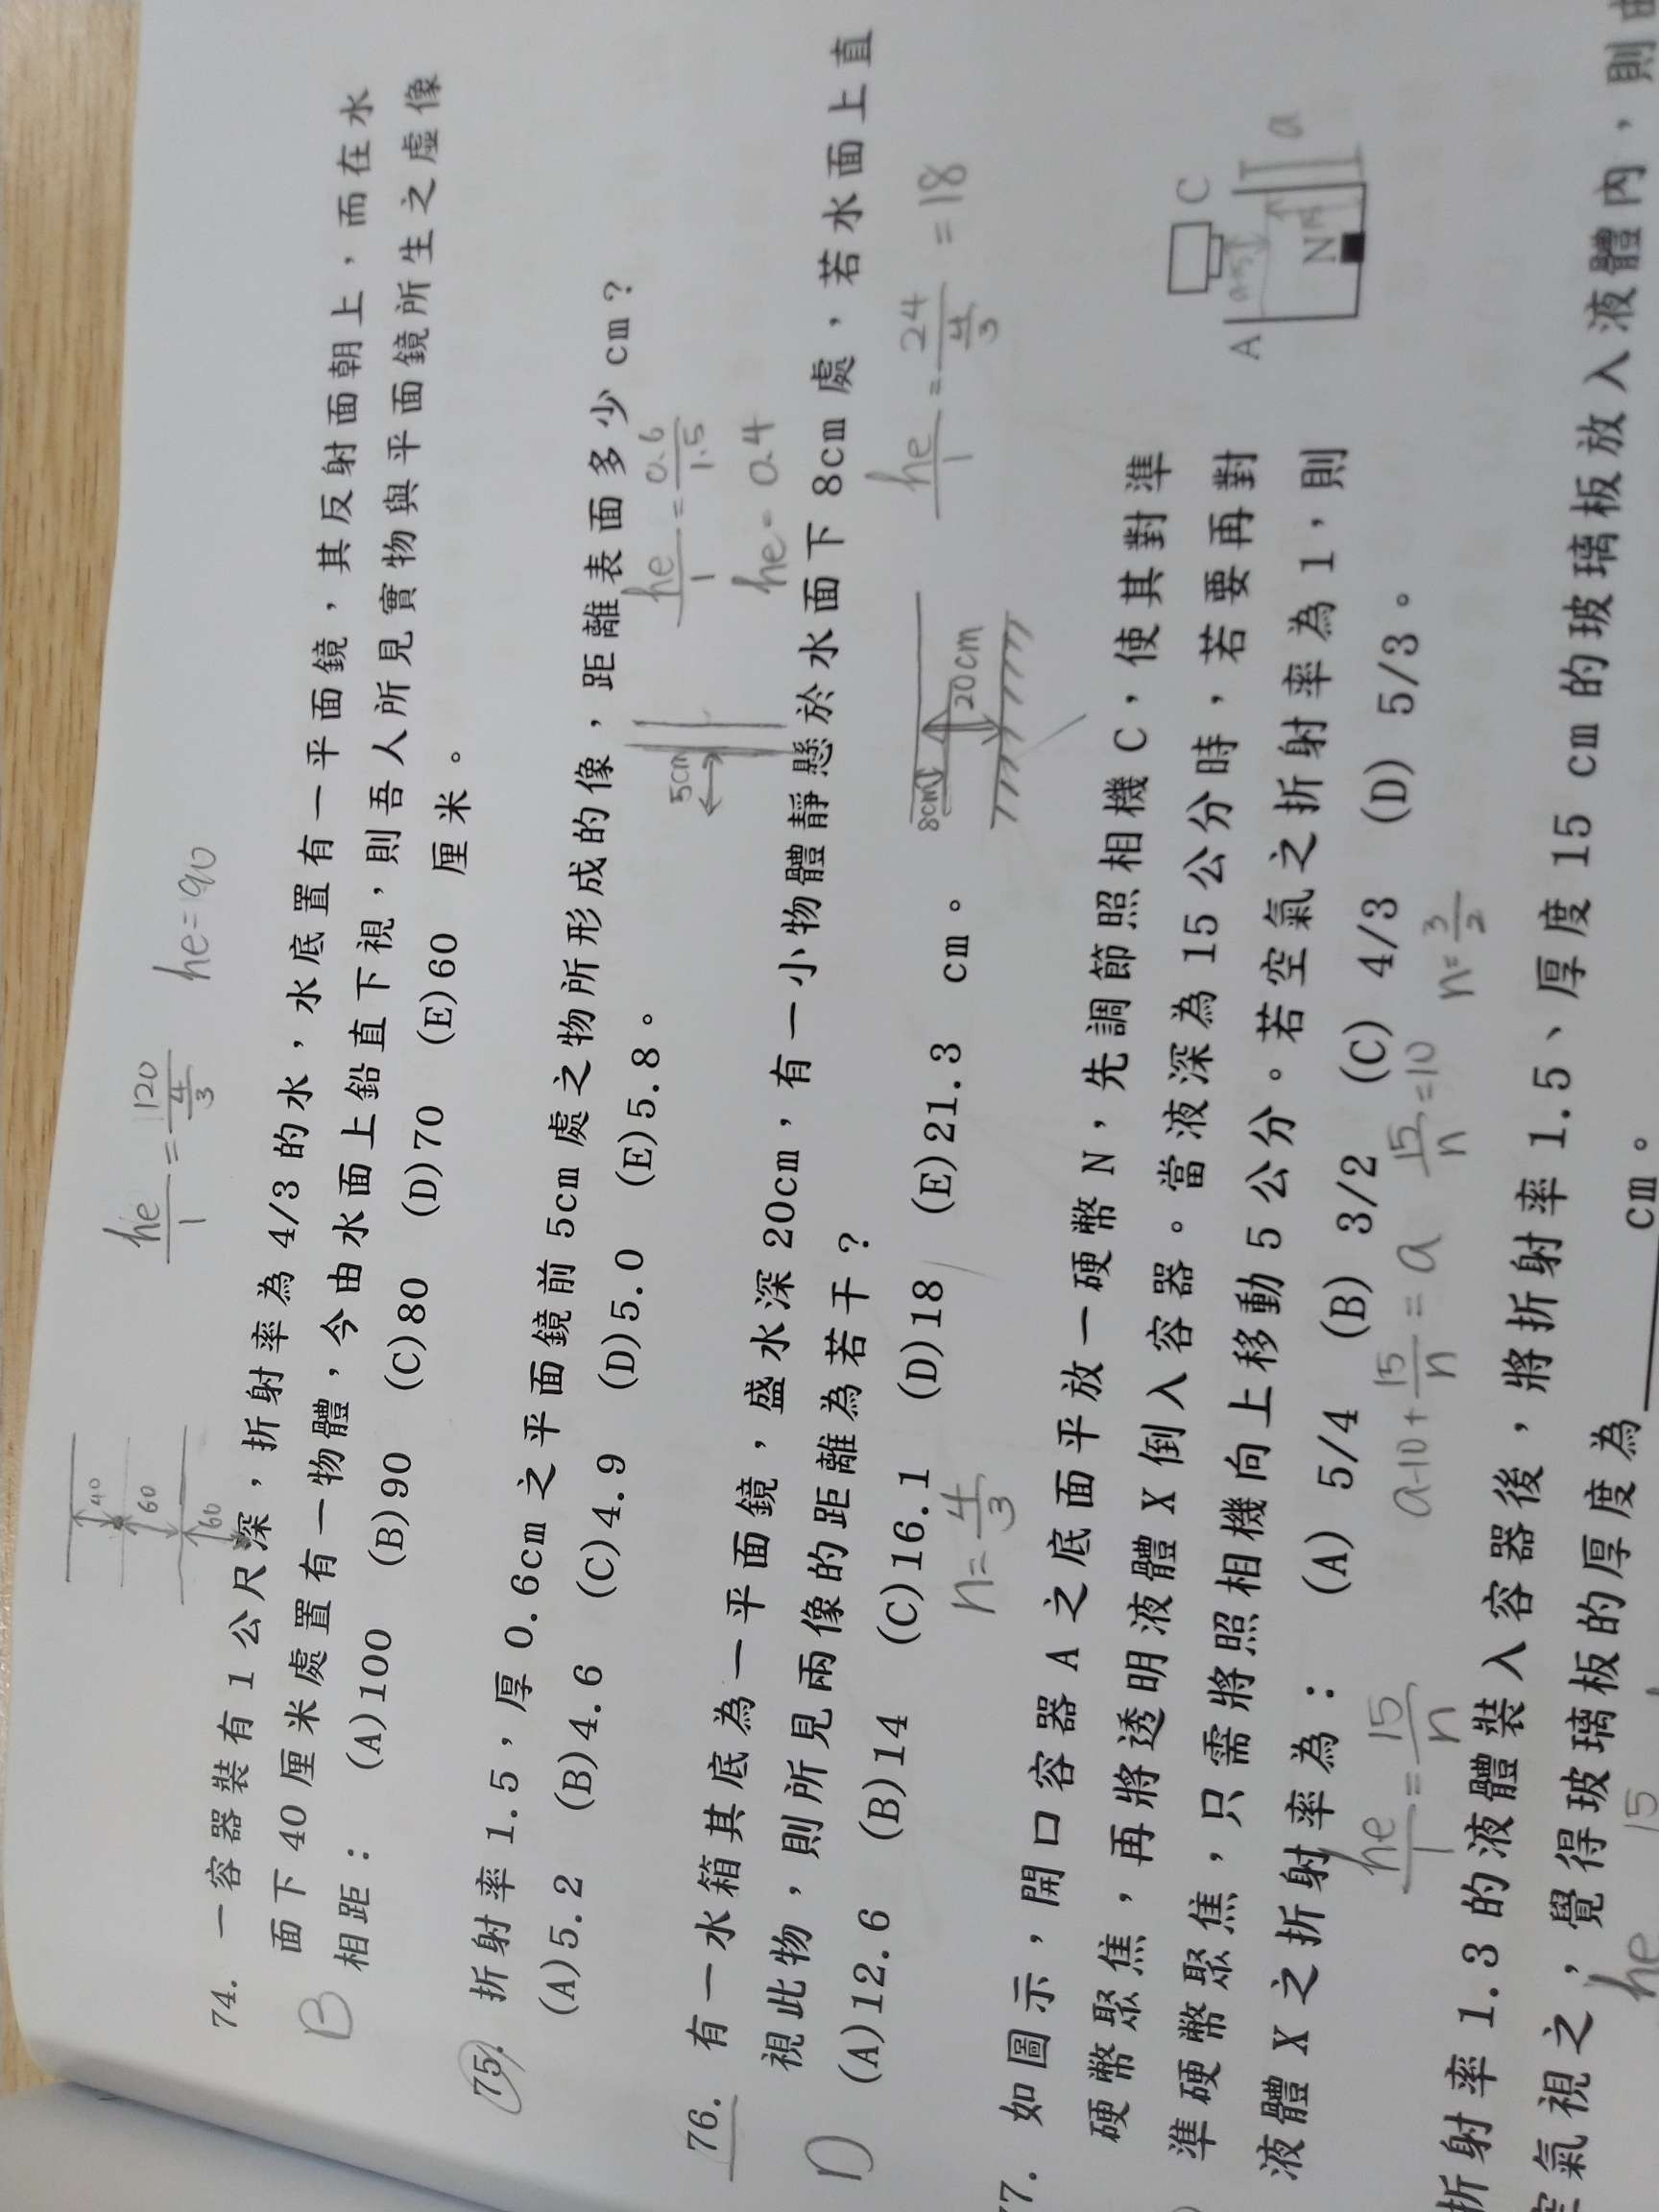 he/1 = 120/(4/3) he=90
40
60
60
74. 一容器裝有 1 公尺深，折射率為 4/3 的水，水底置有一平面鏡，其反射面朝上，而在水
面下 40 厘米處置有一物體，今由水面上鉛直下視，則吾人所見實物與平面鏡所生之虛像
相距： (A)100 (B)90 (C)80 (D)70 (E)60 厘米。
B
75. 折射率 1.5，厚 0.6cm 之平面鏡前 5cm 處之物所形成的像，距離表面多少 cm？
(A)5.2 (B)4.6 (C)4.9 (D)5.0 (E)5.8。
5cm
he/1 = 0.6/1.5
he = 0.4
76. 有一水箱其底為一平面鏡，盛水深 20cm，有一小物體靜懸於水面下 8cm 處，若水面上直
視此物，則所見兩像的距離為若干？
D
(A)12.6 (B)14 (C)16.1 (D)18 (E)21.3 cm。
n=4/3
8cm
20cm
he/1 = 24/(4/3) = 18
77. 如圖示，開口容器 A 之底面平放一硬幣 N，先調節照相機 C，使其對準
硬幣聚焦，再將透明液體 X 倒入容器。當液深為 15 公分時，若要再對
準硬幣聚焦，只需將照相機向上移動 5 公分。若空氣之折射率為 1，則
液體 X 之折射率為： (A) 5/4 (B) 3/2 (C) 4/3 (D) 5/3。
A
C
N
a
he/1 = 15/n
a-10+15/n = a
15/n=10
n=3/2
折射率 1.3 的液體裝入容器後，將折射率 1.5、厚度 15 cm 的玻璃板放入液體內，則由
空氣視之，覺得玻璃板的厚度為 cm。
he 15